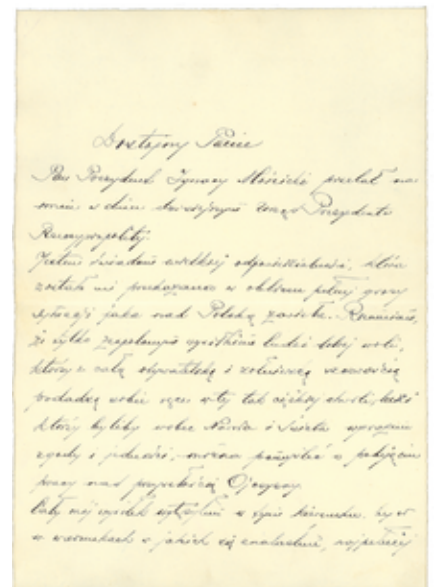 Dostojny Panie
Pan Prezydent Ignacy Mościcki przelał na
mnie w dniu dzisiejszym urząd Prezydenta
Rzeczypospolitej.
Jestem świadom wielkiej odpowiedzialności, która
została mi przekazana w obliczu pełnej grozy
sytuacji jaka nad Polską zawisła. Rozumiem,
że tylko zespolonym wysiłkiem ludzi dobrej woli,
którzy z całą obywatelską i żołnierską
podadzą sobie ręce w tej tak ciężkiej chwili,
którzy byliby wobec Narodu i Świata wyrazem
zgody i jedności, można pomyśleć o podjęciu
pracy nad przyszłością Ojczyzny.
Cały mój wysiłek w tym kierunku, by
w warunkach w jakich się znaleźliśmy, najpełniej